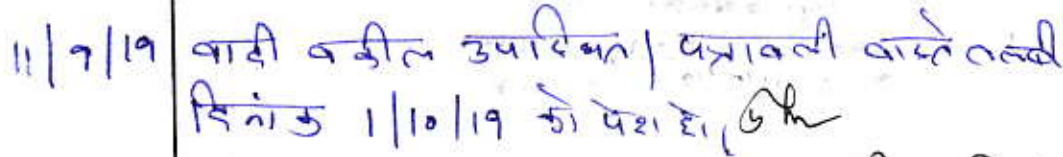 11/9/19 वादी वकील उपस्थित। पत्रावली वास्ते तलबी
दिनांक 1/10/19 को पेश हो।